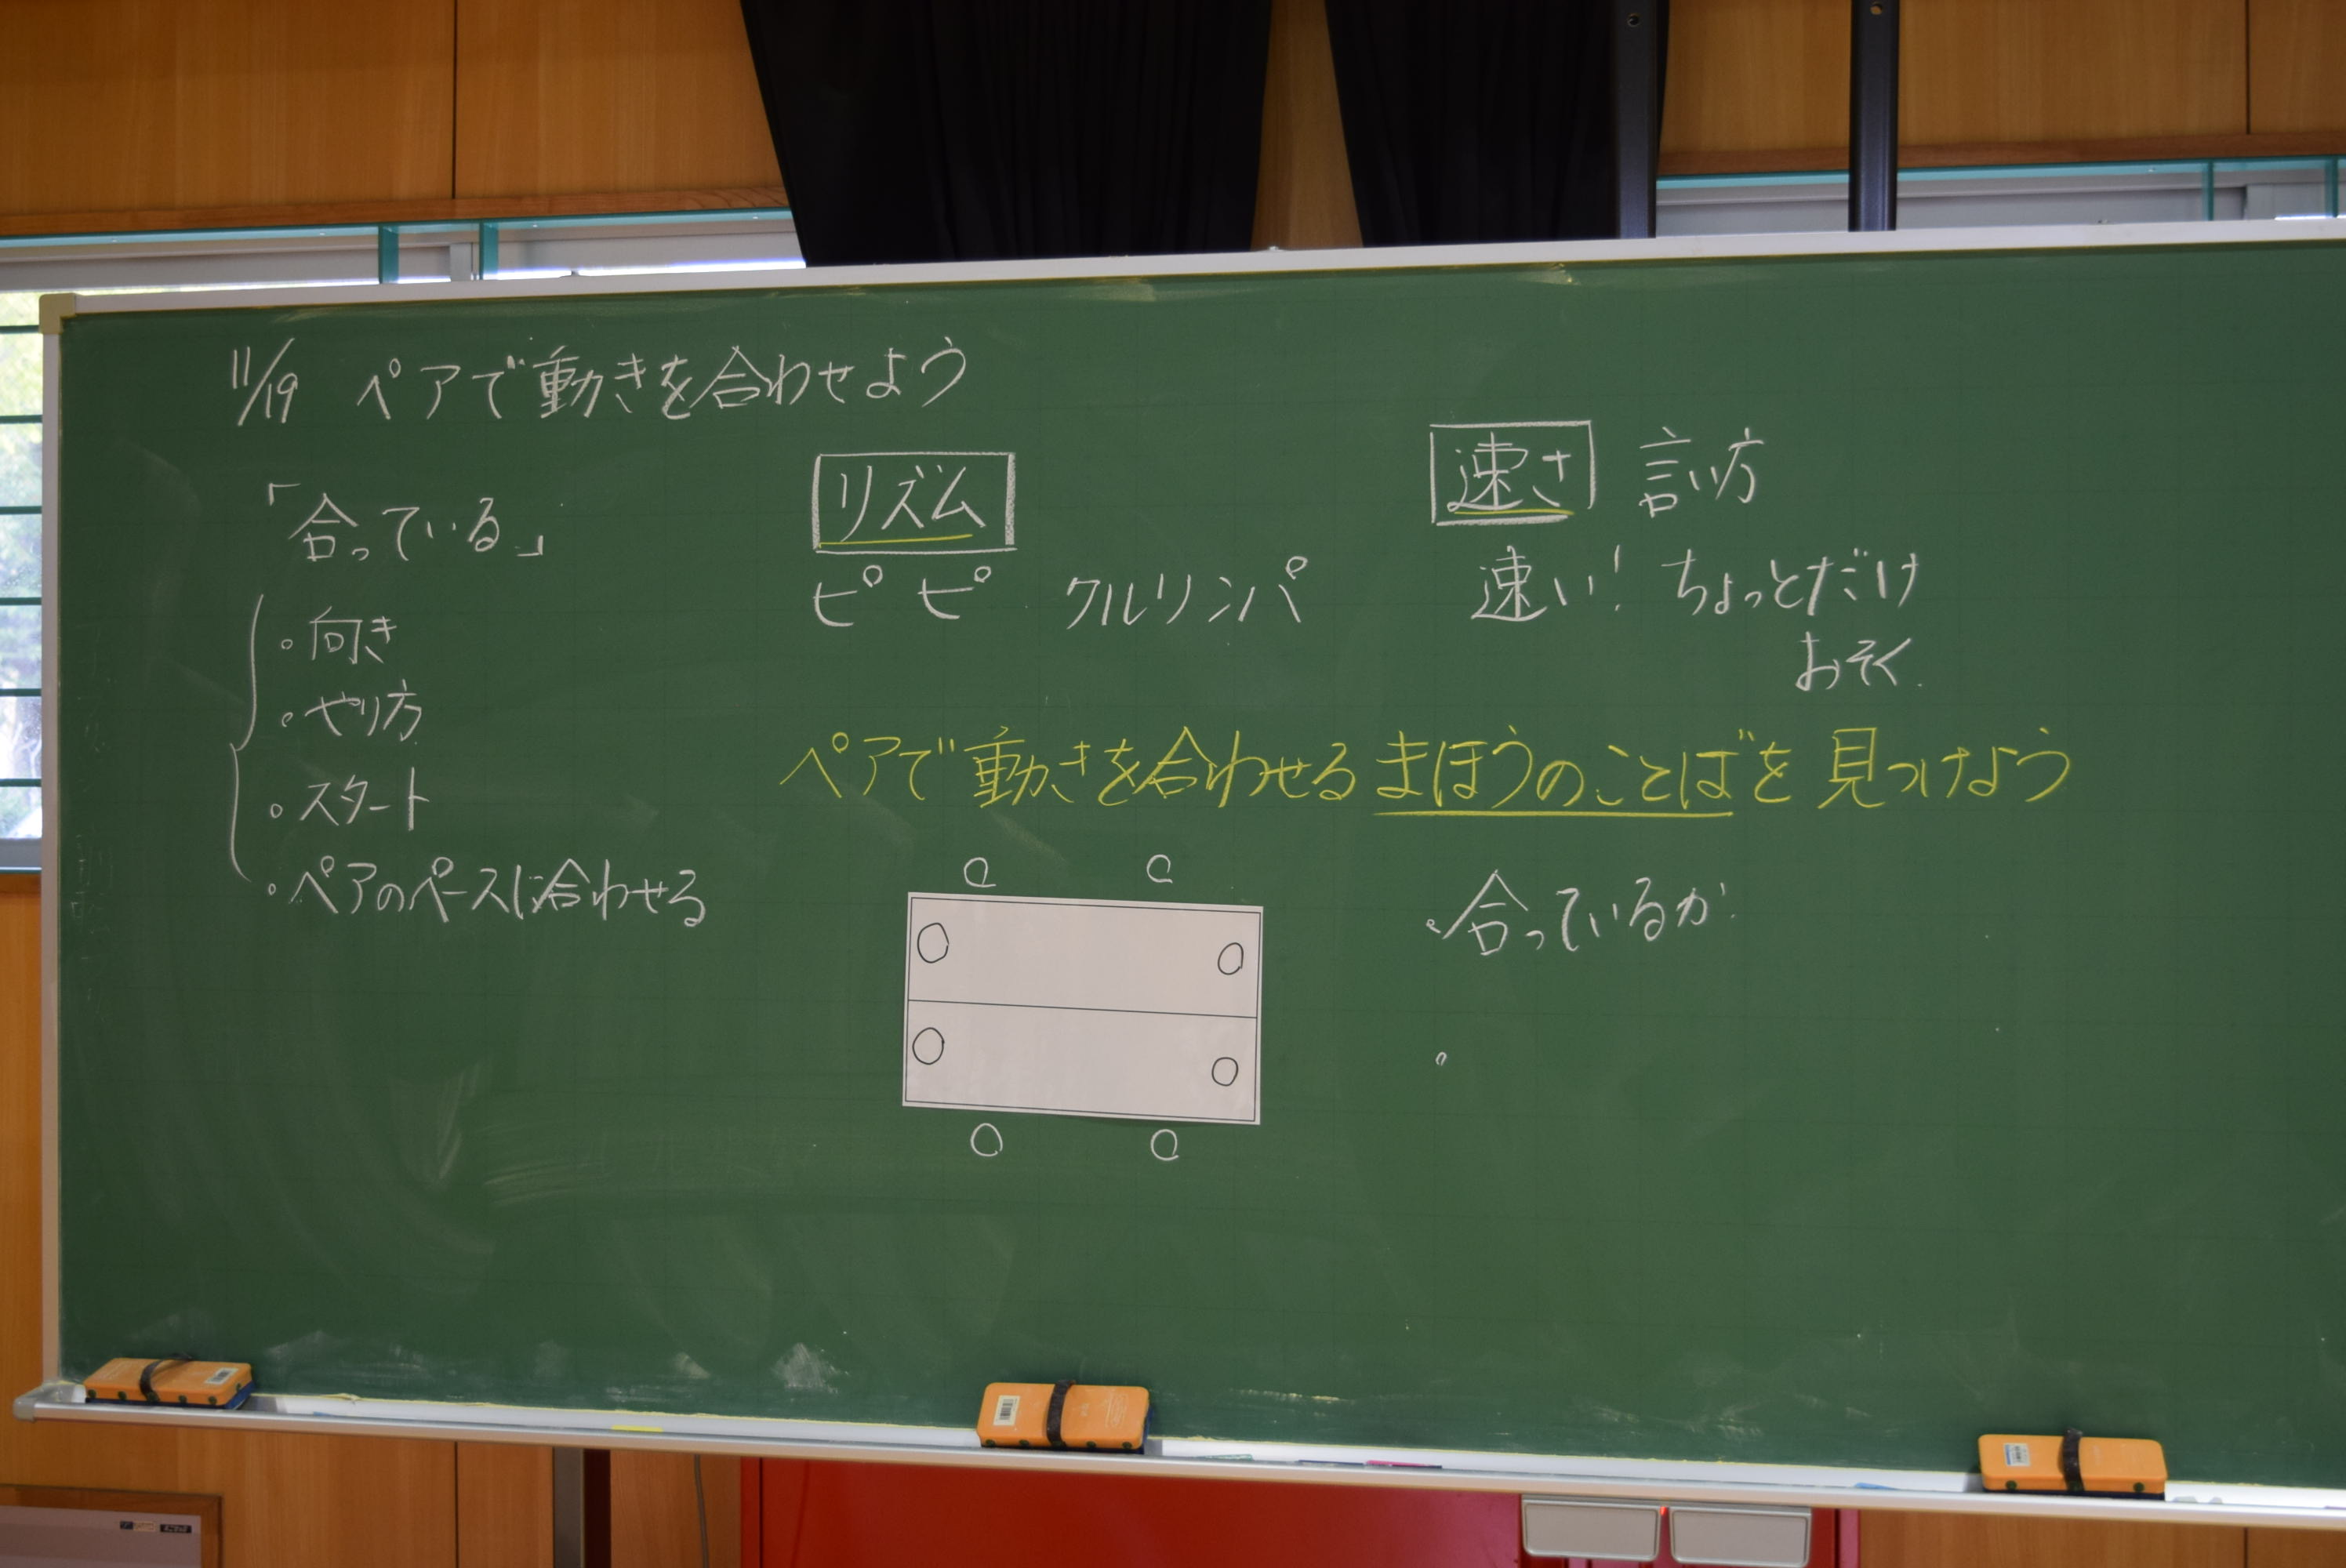 11/19 ペアで動きを合わせよう
「合っている」
・向き
・やり方
・スタート
・ペアのペースに合わせる
リズム
ピピ クルリンパ
速さ 言い方
速い! ちょっとだけ
おそく
ペアで動きを合わせるまほうのことばを見つけよう
・合っているか
・